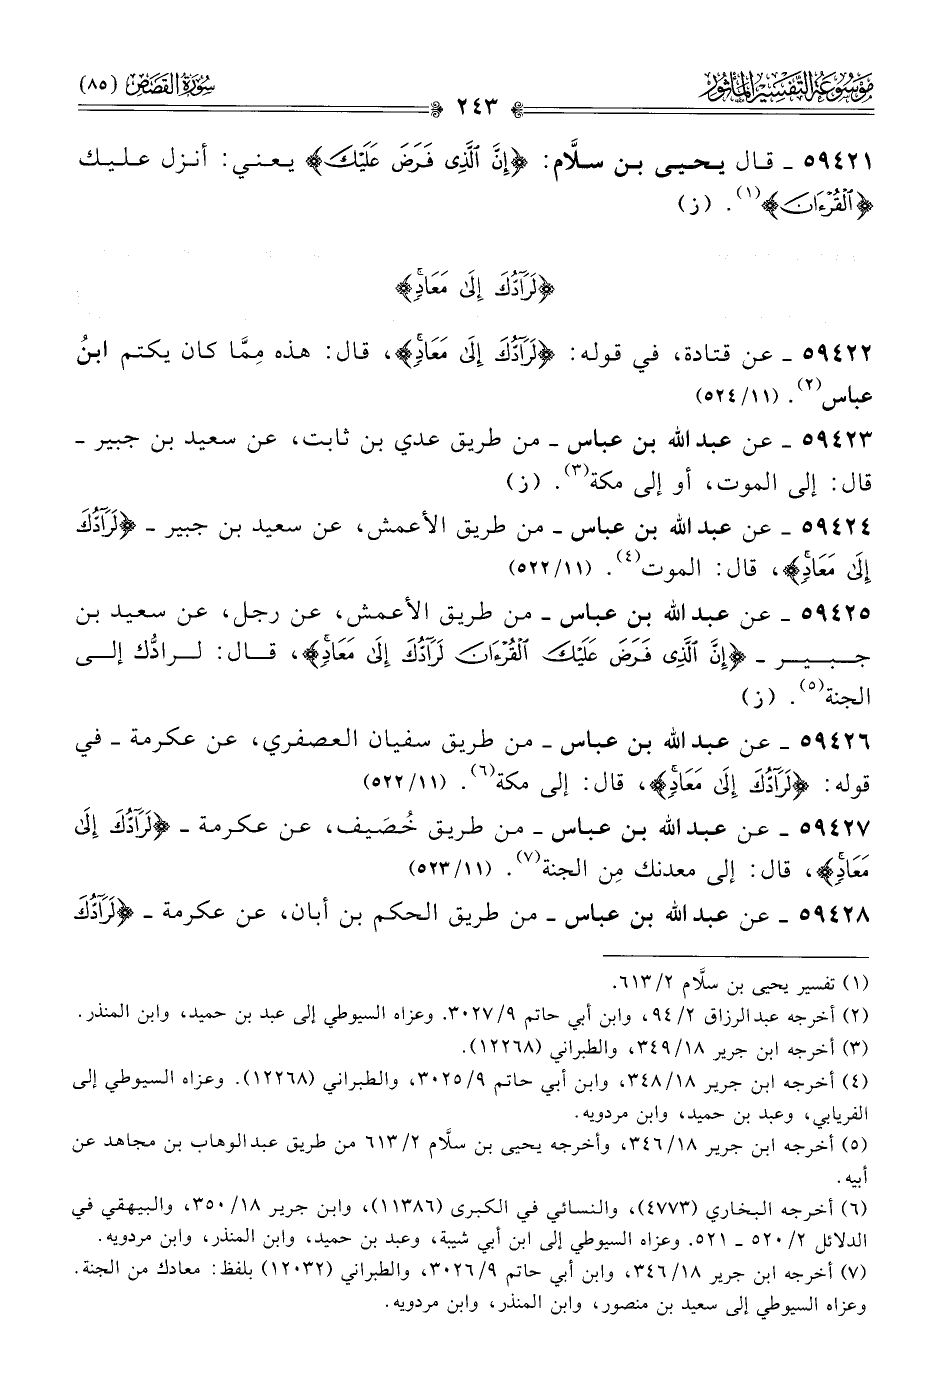 مَوْسُوعَة التَّفْسِير المَأْثُور
سُورَةُ القَصَصِ (٨٥)
٢٤٣
٥٩٤٢١ ـ قال يحيى بن سلَّام: ﴿إِنَّ ٱلَّذِى فَرَضَ عَلَيْكَ﴾ يعني: أنزل عليك
﴿ٱلْقُرْءَانَ﴾(١). (ز)
﴿لَرَآدُّكَ إِلَىٰ مَعَادٍ﴾
٥٩٤٢٢ ـ عن قتادة، في قوله: ﴿لَرَآدُّكَ إِلَىٰ مَعَادٍ﴾، قال: هذه مِمَّا كان يكتم ابنُ
عباس(٢). (١١/ ٥٢٤)
٥٩٤٢٣ ـ عن عبد الله بن عباس ـ من طريق عدي بن ثابت، عن سعيد بن جبير ـ
قال: إلى الموت، أو إلى مكة(٣). (ز)
٥٩٤٢٤ ـ عن عبد الله بن عباس ـ من طريق الأعمش، عن سعيد بن جبير ـ ﴿لَرَآدُّكَ
إِلَىٰ مَعَادٍ﴾، قال: الموت(٤). (١١/ ٥٢٢)
٥٩٤٢٥ ـ عن عبد الله بن عباس ـ من طريق الأعمش، عن رجل، عن سعيد بن
جبير ـ ﴿إِنَّ ٱلَّذِى فَرَضَ عَلَيْكَ ٱلْقُرْءَانَ لَرَآدُّكَ إِلَىٰ مَعَادٍ﴾، قال: لرادُّك إلى
الجنة(٥). (ز)
٥٩٤٢٦ ـ عن عبد الله بن عباس ـ من طريق سفيان العصفري، عن عكرمة ـ في
قوله: ﴿لَرَآدُّكَ إِلَىٰ مَعَادٍ﴾، قال: إلى مكة(٦). (١١/ ٥٢٢)
٥٩٤٢٧ ـ عن عبد الله بن عباس ـ من طريق خُصَيف، عن عكرمة ـ ﴿لَرَآدُّكَ إِلَىٰ
مَعَادٍ﴾، قال: إلى معدنك مِن الجنة(٧). (١١/ ٥٢٣)
٥٩٤٢٨ ـ عن عبد الله بن عباس ـ من طريق الحكم بن أبان، عن عكرمة ـ ﴿لَرَآدُّكَ
(١) تفسير يحيى بن سلَّام ٢/ ٦١٣.
(٢) أخرجه عبدالرزاق ٢/ ٩٤، وابن أبي حاتم ٩/ ٣٠٢٧. وعزاه السيوطي إلى عبد بن حميد، وابن المنذر.
(٣) أخرجه ابن جرير ١٨/ ٣٤٩، والطبراني (١٢٢٦٨).
(٤) أخرجه ابن جرير ١٨/ ٣٤٨، وابن أبي حاتم ٩/ ٣٠٢٥، والطبراني (١٢٢٦٨). وعزاه السيوطي إلى
الفريابي، وعبد بن حميد، وابن مردويه.
(٥) أخرجه ابن جرير ١٨/ ٣٤٦، وأخرجه يحيى بن سلَّام ٢/ ٦١٣ من طريق عبدالوهاب بن مجاهد عن
أبيه.
(٦) أخرجه البخاري (٤٧٧٣)، والنسائي في الكبرى (١١٣٨٦)، وابن جرير ١٨/ ٣٥٠، والبيهقي في
الدلائل ٢/ ٥٢٠ ـ ٥٢١. وعزاه السيوطي إلى ابن أبي شيبة، وعبد بن حميد، وابن المنذر، وابن مردويه.
(٧) أخرجه ابن جرير ١٨/ ٣٤٦، وابن أبي حاتم ٩/ ٣٠٢٦، والطبراني (١٢٠٣٢) بلفظ: معادك من الجنة.
وعزاه السيوطي إلى سعيد بن منصور، وابن المنذر، وابن مردويه.